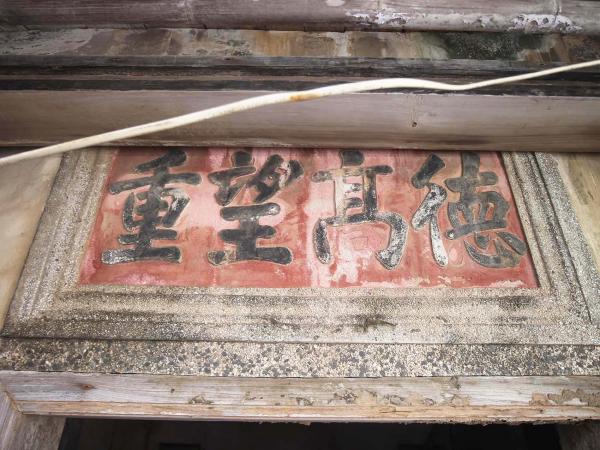 德高望重